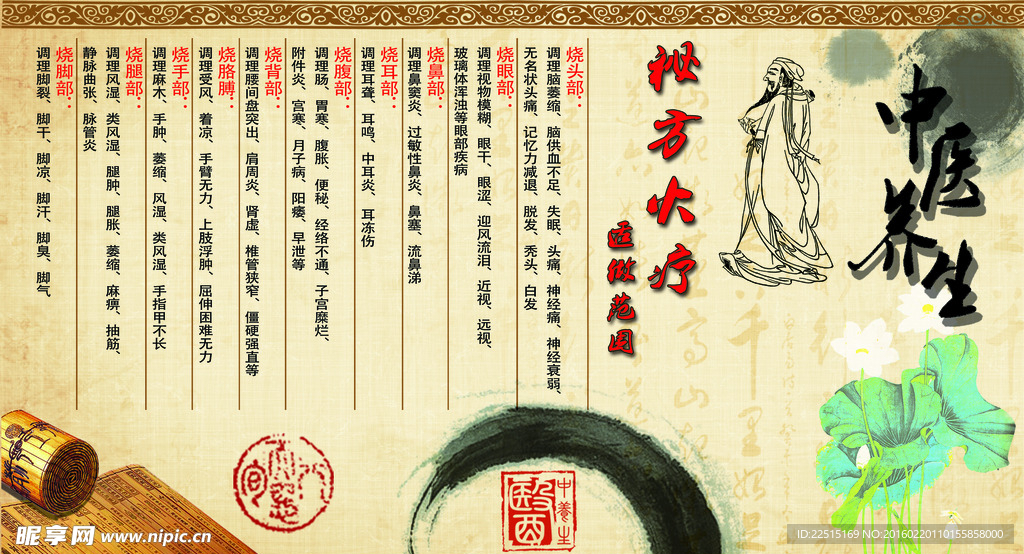 中医养生
秘方火疗
适做范围
烧头部：
调理脑萎缩、脑供血不足、失眠、头痛、神经痛、神经衰弱、
无名状头痛、记忆力减退、脱发、秃头、白发
烧眼部：
调理视物模糊、眼干、眼涩、迎风流泪、近视、远视、
玻璃体浑浊等眼部疾病
烧鼻部：
调理鼻窦炎、过敏性鼻炎、鼻塞、流鼻涕
烧耳部：
调理耳聋、耳鸣、中耳炎、耳冻伤
烧腹部：
调理肠、胃寒、腹胀、便秘、经络不通、子宫糜烂、
附件炎、宫寒、月子病、阳痿、早泄等
烧背部：
调理腰间盘突出、肩周炎、肾虚、椎管狭窄、僵硬强直等
烧胳膊：
调理受风、着凉、手臂无力、上肢浮肿、屈伸困难无力
烧手部：
调理麻木、手肿、萎缩、风湿、类风湿、手指甲不长
烧腿部：
调理风湿、类风湿、腿肿、腿胀、萎缩、麻痹、抽筋、
静脉曲张、脉管炎
烧脚部：
调理脚裂、脚干、脚凉、脚汗、脚臭、脚气
中養生
醫
昵享网 www.nipic.cn
ID:22515169 NO:20160220110155858000